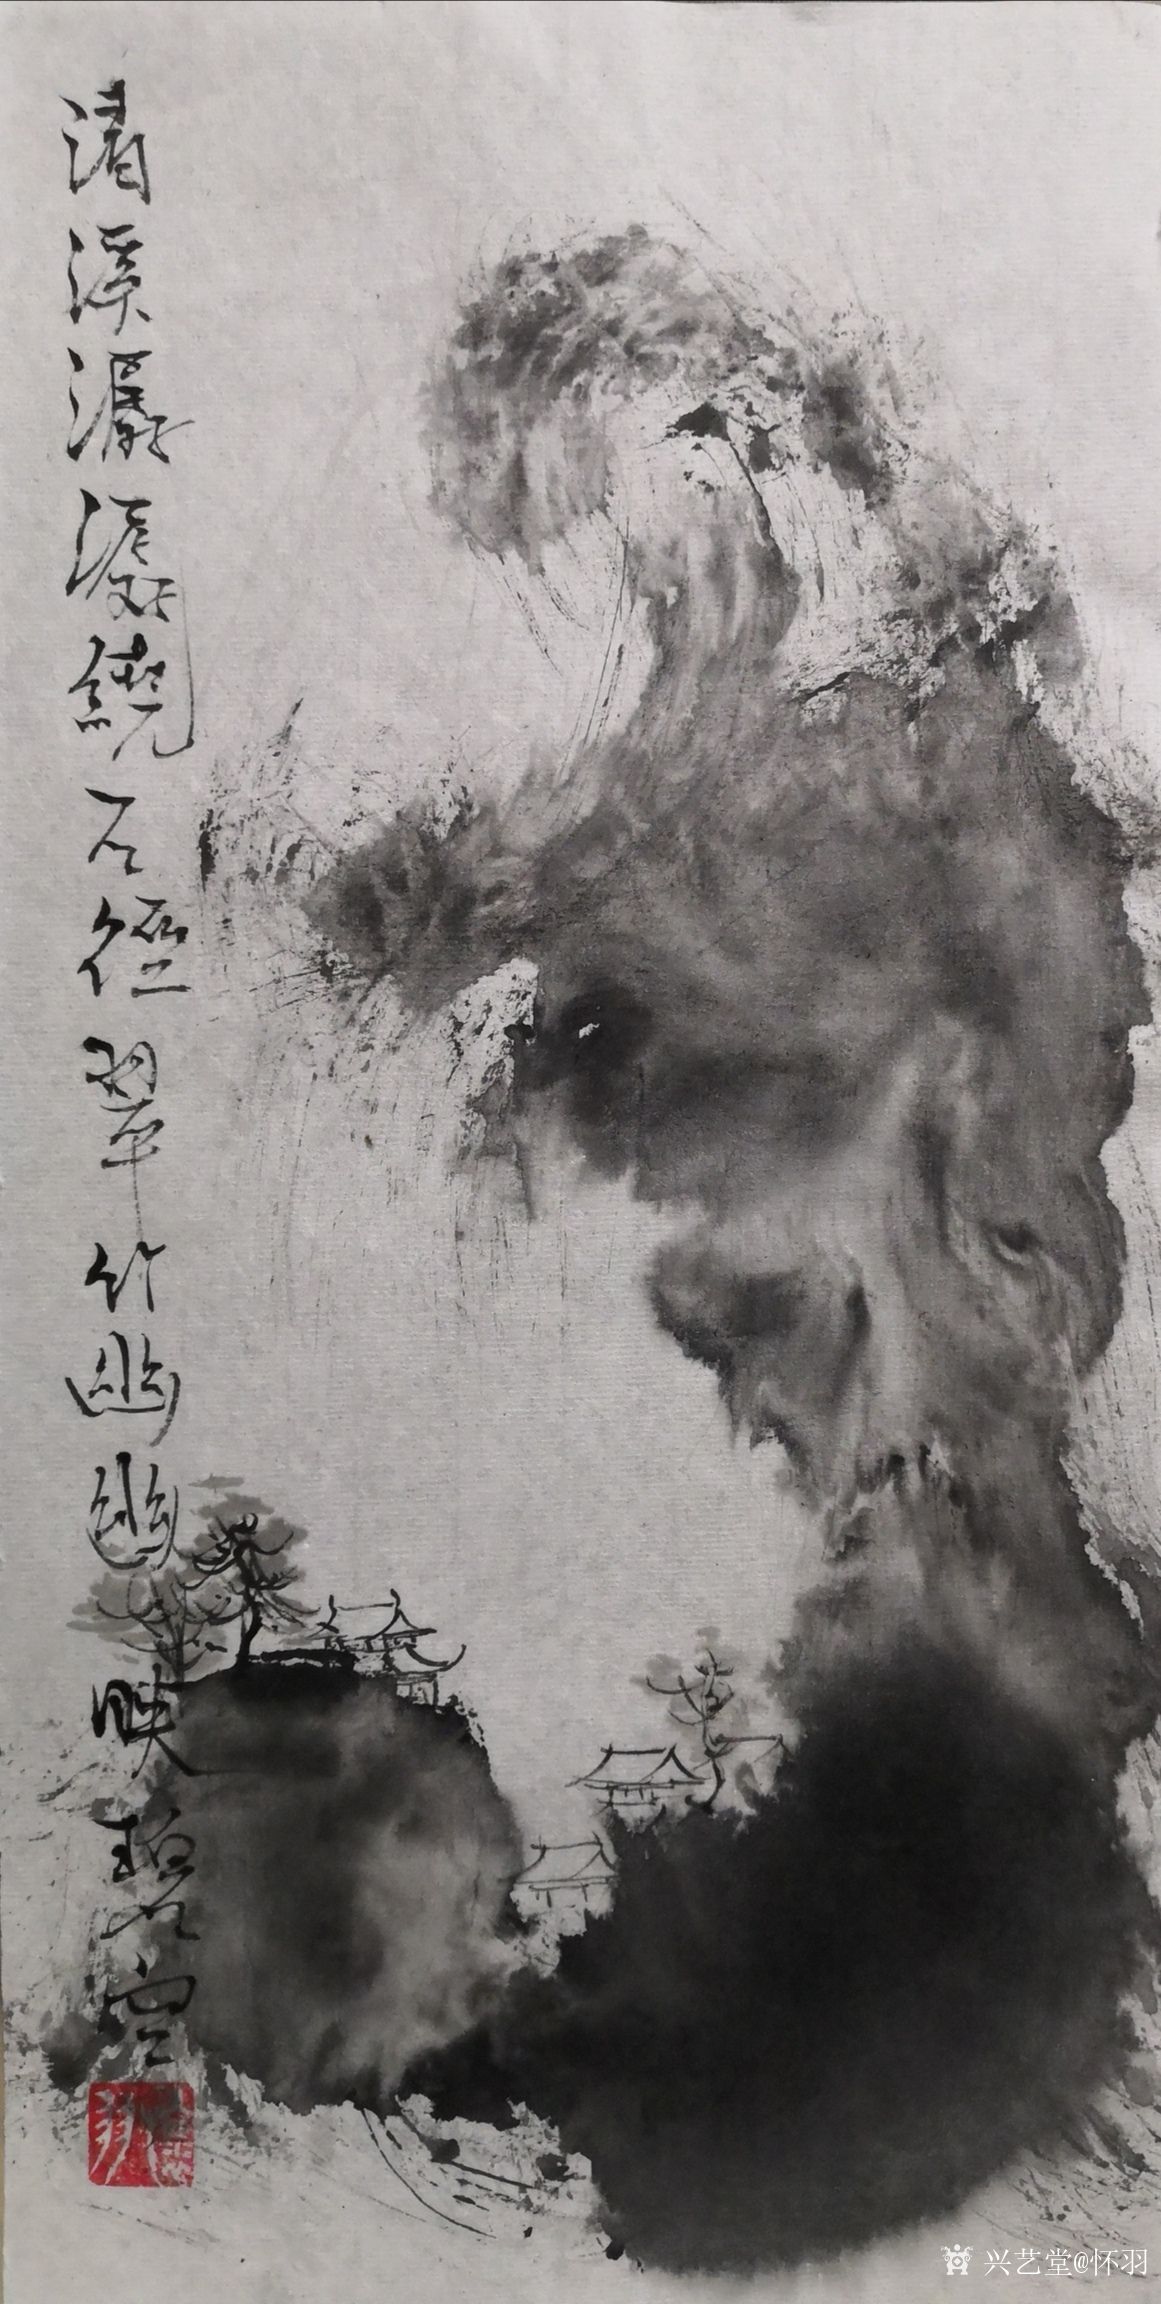 清溪潺潺绕石径翠竹幽幽映碧空
兴艺堂@怀羽